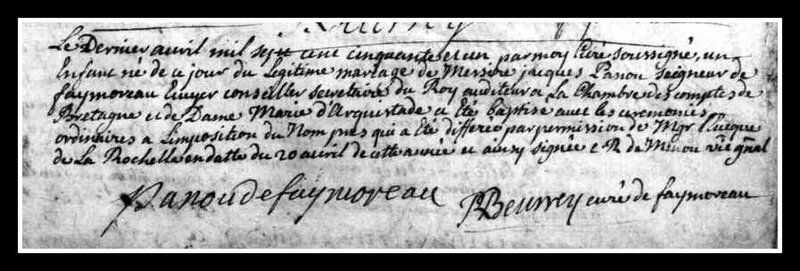 Le Dernier avril mil sept cent cinquante et un par moy Curé soussigné, un
Enfant né de ce jour du Legitime mariage de Messire jacques Panou Seigneur de
faymoreau Ecuyer conseiller secretaire du Roy auditeur a La Chambre des comptes de
Bretagne et de Dame Marie d'Arquistade a été baptisé avec les ceremonies
ordinaires a L'imposition du Nom près qui a été differée par permission de Mgr L'evêque
de La Rochelle en datte du 20 avril de cette année et ainsy signée E R de Menou vic gnal
Panou de faymoreau
Beurrey curé de faymoreau